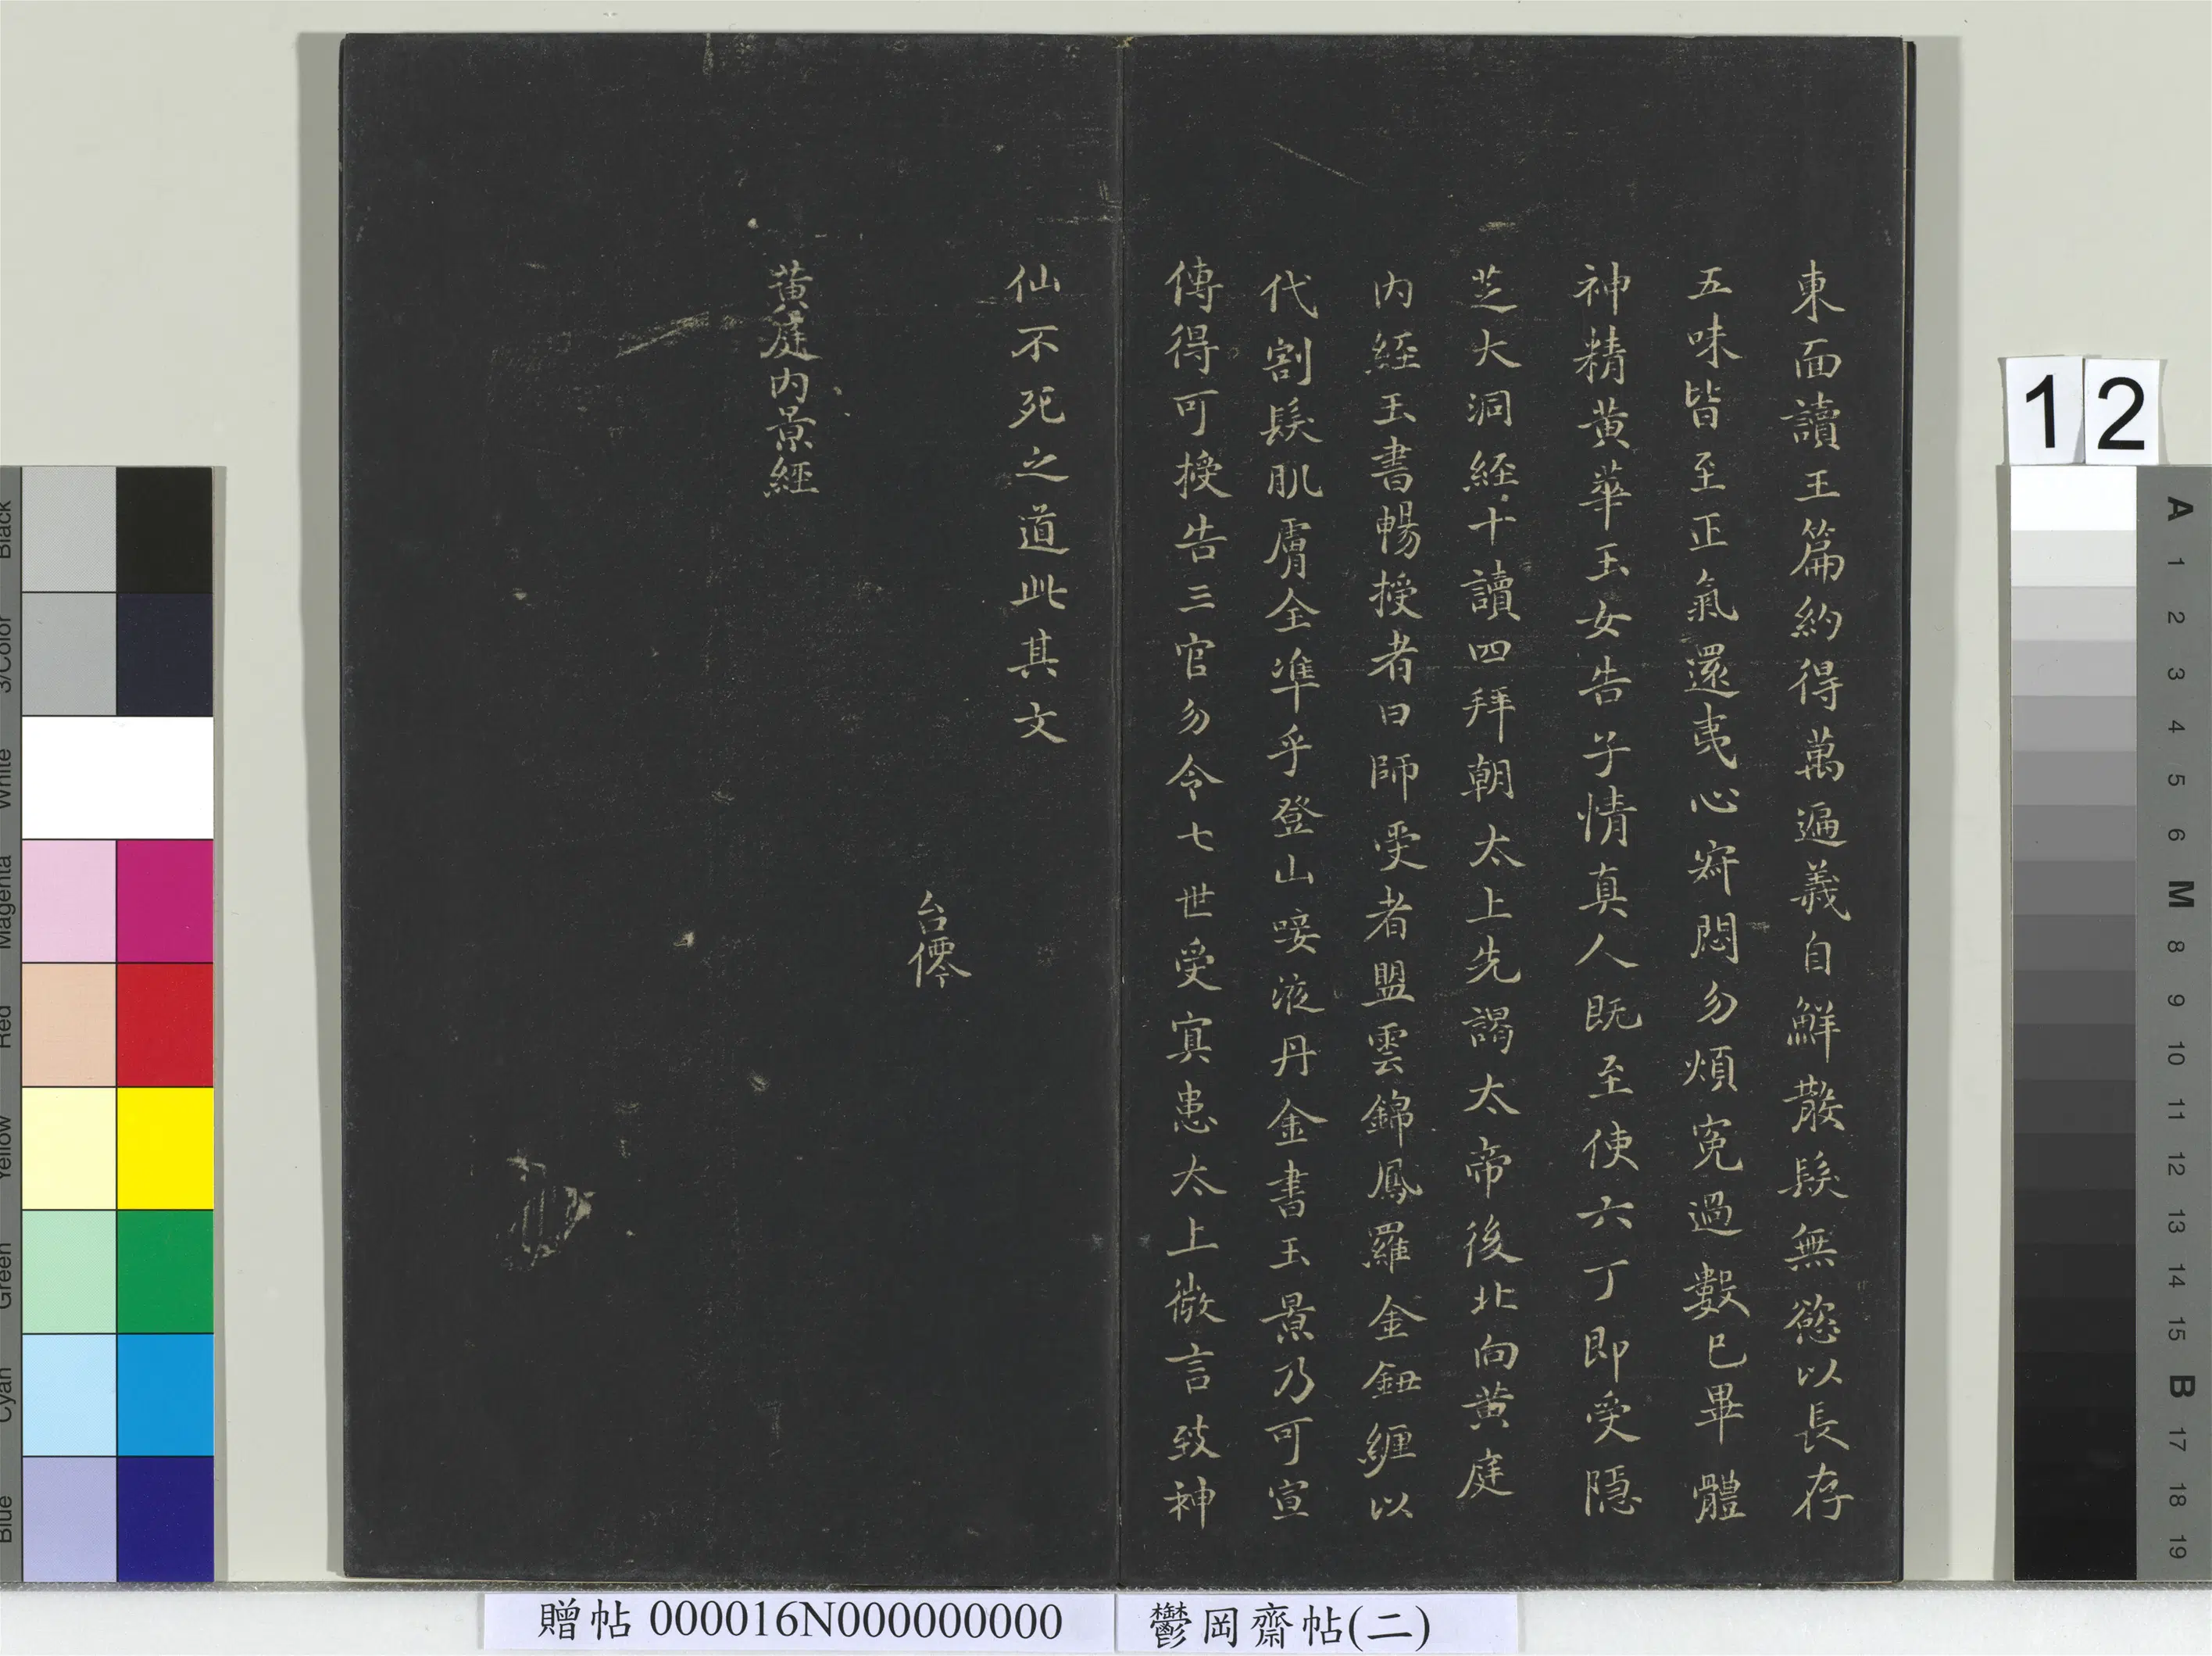 東面讀玉篇約得萬遍義自鮮散髮無慾以長存
五味皆至正氣還夷心寂悶勿煩冤過數已畢體
神精黃華玉女告子情真人既至使六丁即受隱
芝大洞經十讀四拜朝太上先謁太帝後北向黃庭
內經玉書暢授者曰師受者盟雲錦鳳羅金鈕纏以
代割髮肌膚全準乎登山唼液丹金書玉景乃可宣
傳得可授告三官勿令七世受冥患太上微言致神
仙不死之道此其文
台僊
黃庭內景經
12
贈帖 000016N000000000
鬱岡齋帖(二)
Black
3/Color
White
Magenta
Red
Yellow
Green
Cyan
Blue
A
1
2
3
4
5
6
M
8
9
10
11
12
13
14
15
B
17
18
19